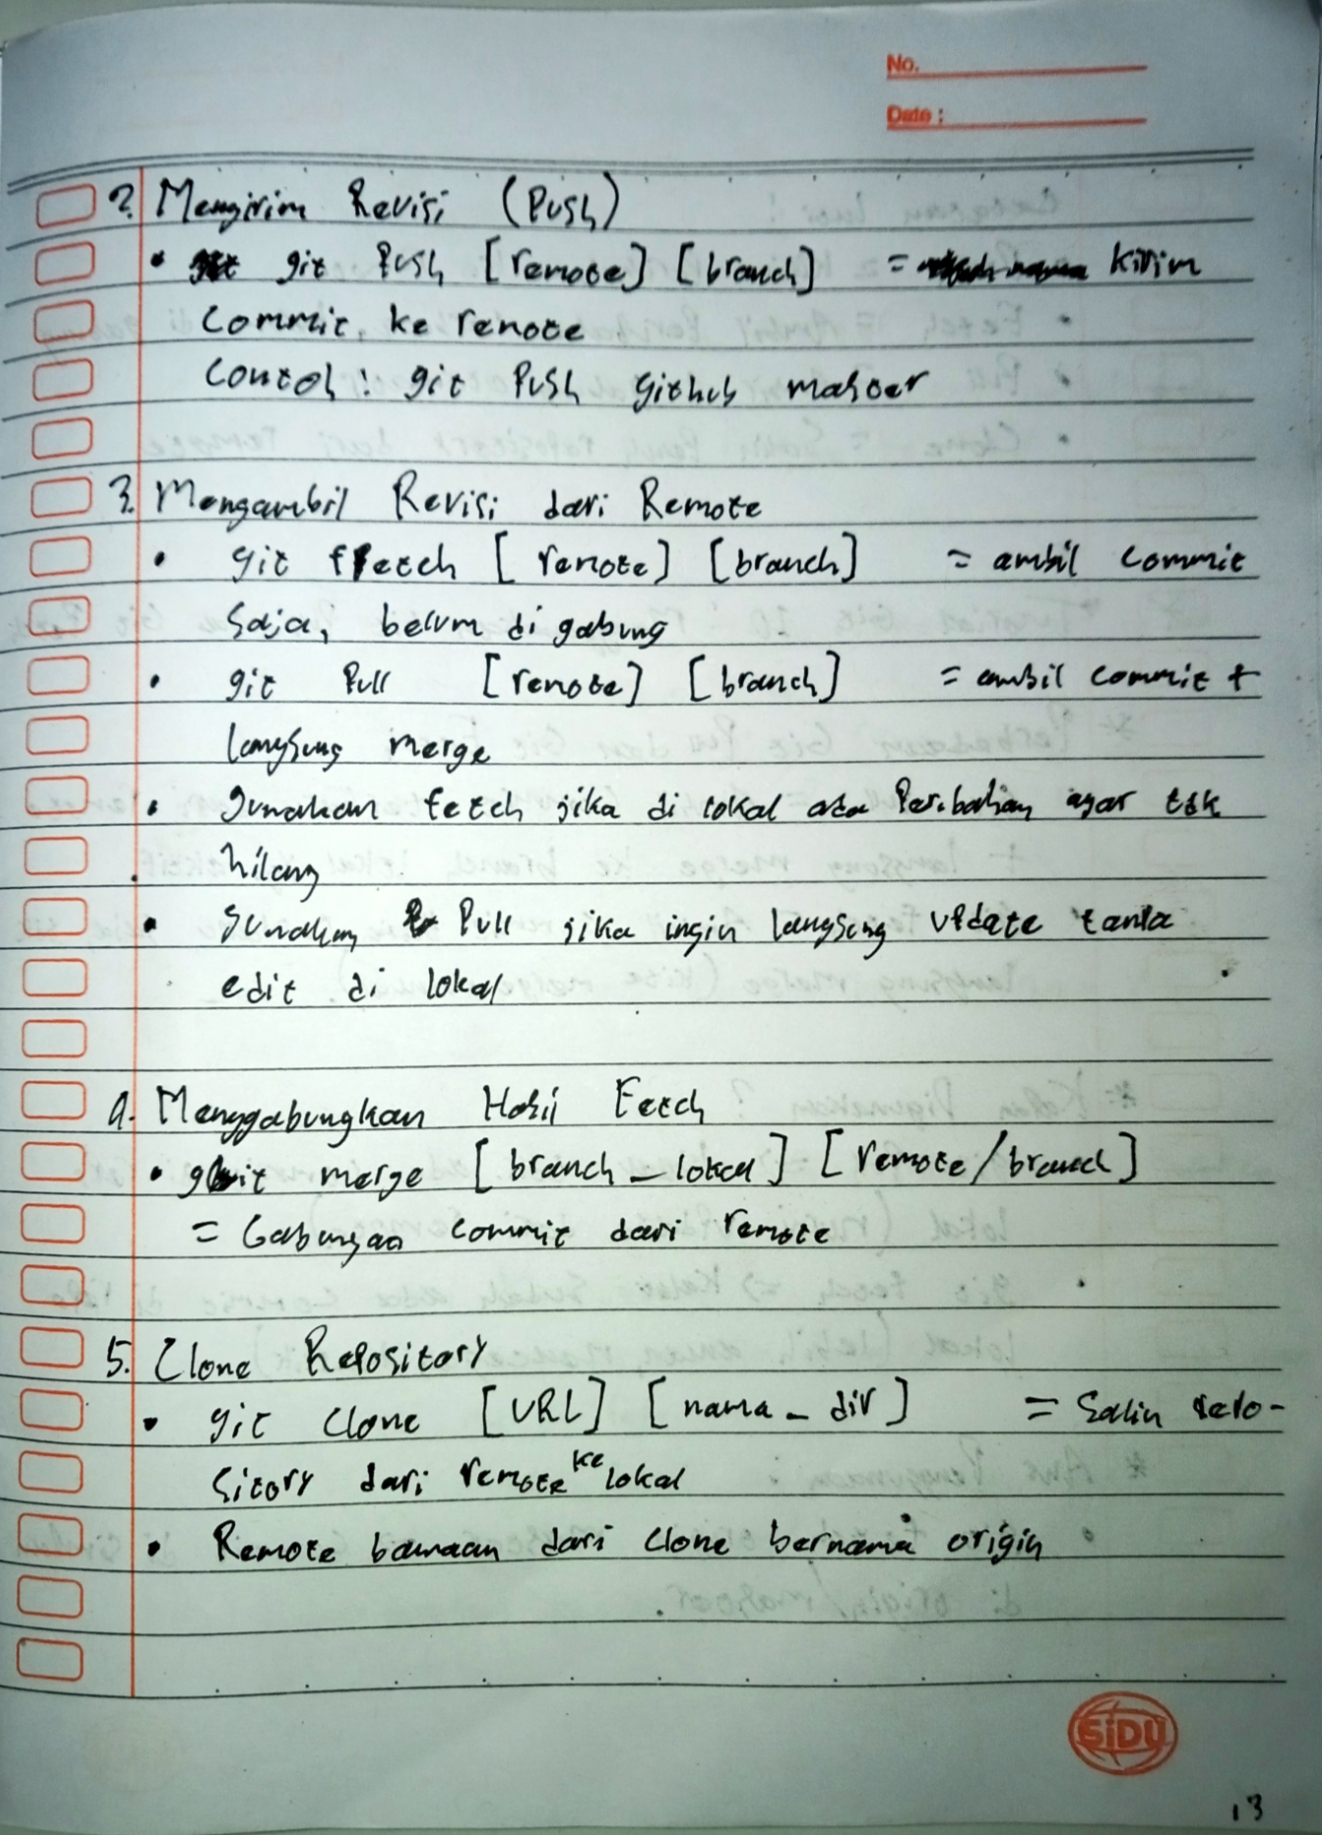 No.
Date :
2. Mengirim Revisi (Push)
• git Push [remote] [branch] = kirim
Commit ke remote
Contoh : git Push github master
3. Mengambil Revisi dari Remote
• git fetch [remote] [branch] = ambil commit
saja, belum di gabung
• git Pull [remote] [branch] = ambil commit +
langsung merge
• gunakan fetch jika di lokal ada Perubahan agar tdk
hilang
• gunakan Pull jika ingin langsung update tanpa
edit di lokal
4. Menggabungkan Hasil Fetch
• git merge [branch_lokal] [remote/branch]
= Gabungan commit dari remote
5. Clone Repository
• git clone [URL] [nama_dir] = Salin repo-
sitory dari remote ke lokal
• Remote bawaan dari clone bernama origin
SiDU
13